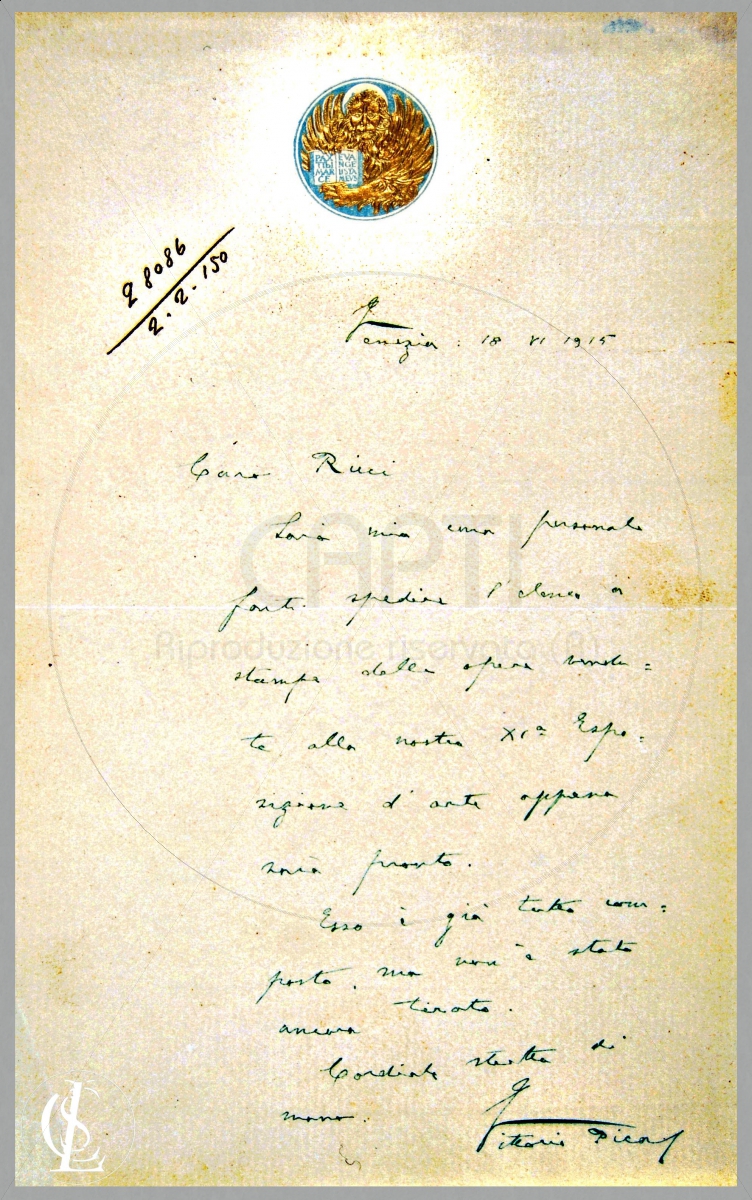 PAX TIBI MARCE EVANGELISTA MEUS
Q 8086
2.2.150
Venezia : 18 VI 1915
Caro Ricci
Sarà mia cura personale
farti spedire l'elenco a
stampa delle opere vendu=
te alla nostra XIª Espo=
sizione d'arte appena
sarà pronto.
Esso è già tutto com=
posto, ma non è stato
ancora tirato.
Cordiale stretta di
mano.
Vittorio Pica
CAPTI
Riproduzione riservata (R)